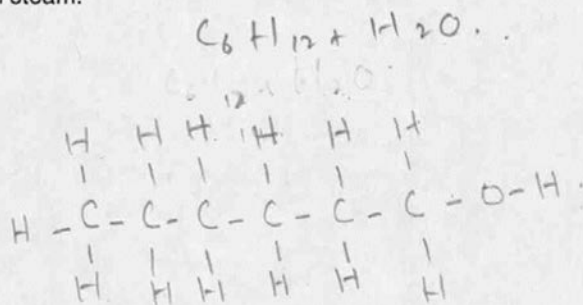 steam.
C6H12 + H2O.
12
H H H H H H
H - C - C - C - C - C - C - O - H
H H H H H H